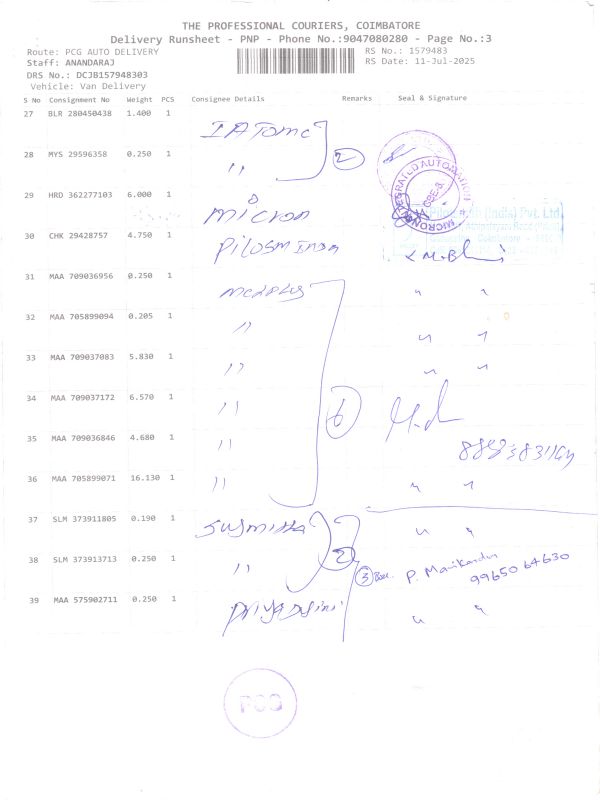 THE PROFESSIONAL COURIERS, COIMBATORE
Delivery Runsheet - PNP - Phone No.:9047080280 - Page No.:3
Route: PCG AUTO DELIVERY
RS No.: 1579483
Staff: ANANDARAJ
RS Date: 11-Jul-2025
DRS No.: DCJB157948303
Vehicle: Van Delivery
S No Consignment No Weight PCS Consignee Details Remarks Seal & Signature
27 BLR 280450438 1.400 1
28 MYS 29596358 0.250 1 " 2
29 HRD 362277103 6.000 1 micron
MICRON INTEGRATED AUTOMATION
CBE-3
(India) Pvt. Ltd.
30 CHK 29428757 4.750 1
31 MAA 709036956 0.250 1 " "
32 MAA 705899094 0.205 1 " " "
33 MAA 709037083 5.830 1 " " "
34 MAA 709037172 6.570 1 " 6
35 MAA 709036846 4.680 1 "
36 MAA 705899071 16.130 1 " " "
37 SLM 373911805 0.190 1 Susmitha " "
38 SLM 373913713 0.250 1 " 2
3 Box P. Manikandn
99650 64630
39 MAA 575902711 0.250 1 " "
PCG